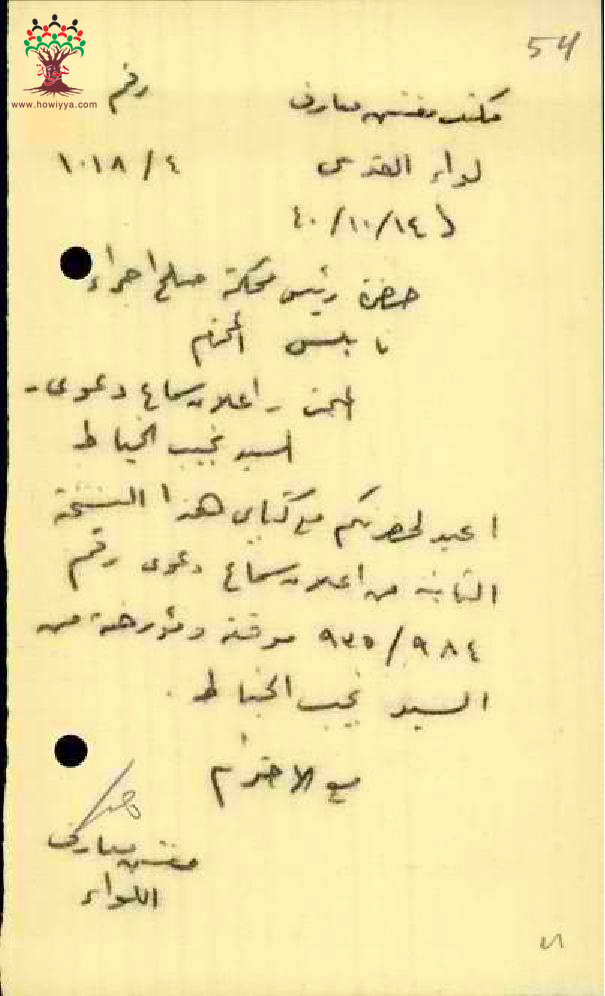 54
www.howiyya.com
مكتب مفتش معارف رقم
لواء القدس ١٠١٨/٤
٤٠/١٠/١٤
حضرة رئيس محكمة صلح اجراء
نابلس المحترم
اعلان سماع دعوى -
السيد نجيب الخياط
اعيد لحضرتكم مع كتابي هذا النسخة
الثانية من اعلان سماع دعوى رقم
٩٣٥/٩٨٤ موقعة ومؤرخة من
السيد نجيب الخياط .
مع الاحترام
مفتش معارف
اللواء